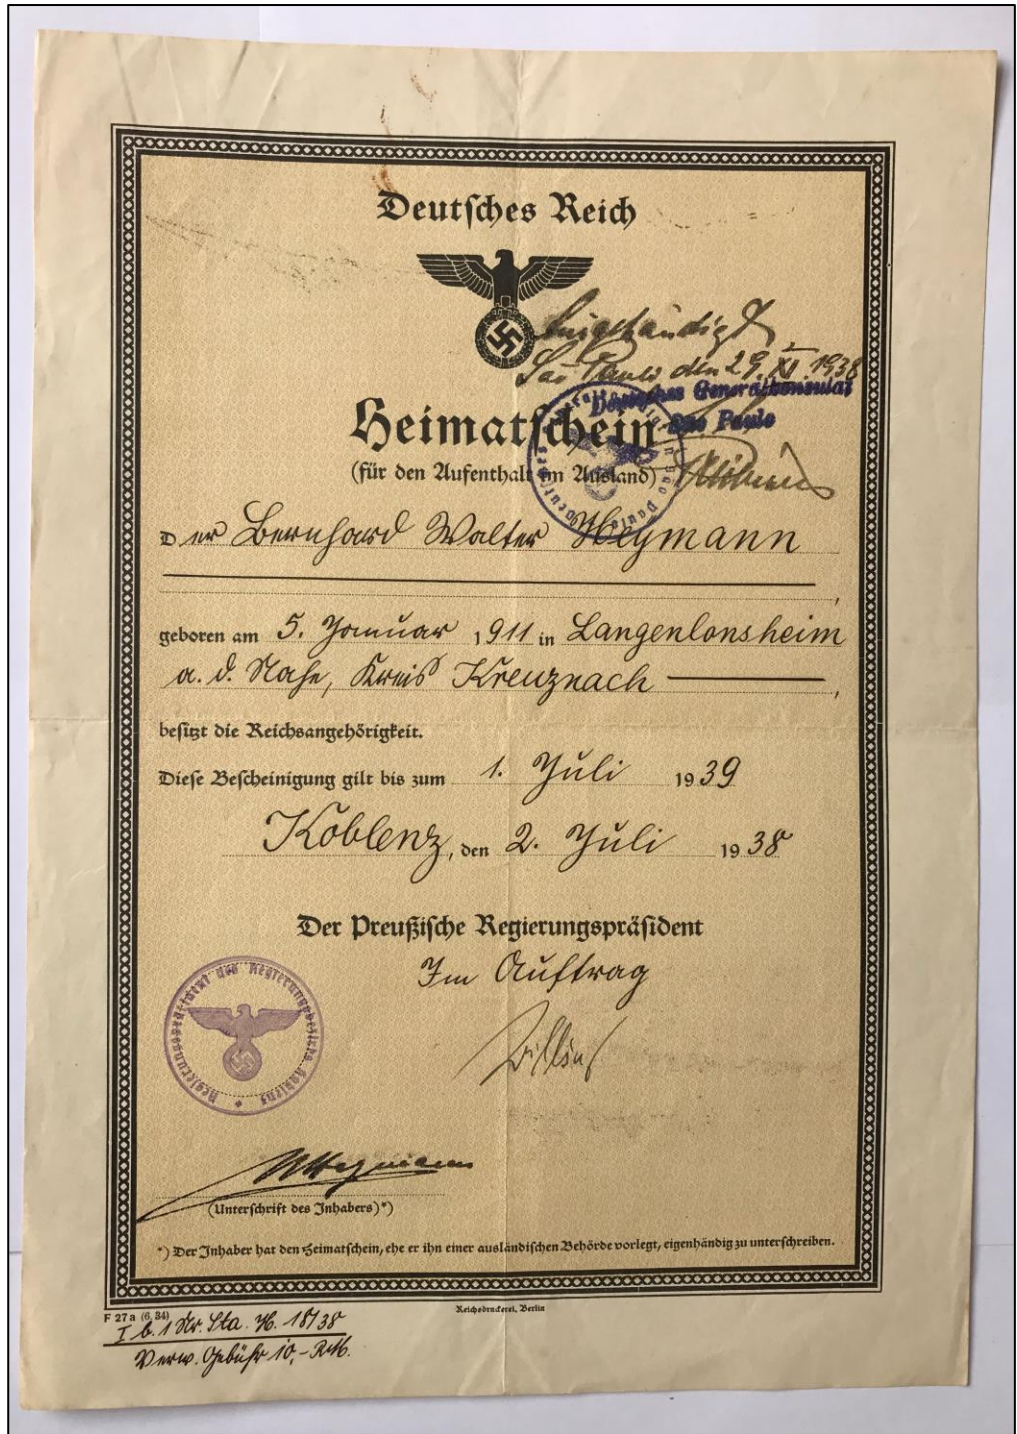 Deutsches Reich
Ausgehändigt
Sao Paulo den 29. XI. 1938
Deutsches Generalkonsulat
Sao Paulo
Heimatschein
(für den Aufenthalt im Ausland)
Der Bernhard Walter Heymann
geboren am 5. Januar 1911 in Langenlonsheim
a. d. Nahe, Kreis Kreuznach
besitzt die Reichsangehörigkeit.
Diese Bescheinigung gilt bis zum 1. Juli 1939
Koblenz, den 2. Juli 1938
Der Preußische Regierungspräsident
Im Auftrag
Regierungspräsident des Regierungsbezirks Koblenz
WHeymann
(Unterschrift des Inhabers)*)
*) Der Inhaber hat den Heimatschein, ehe er ihn einer ausländischen Behörde vorlegt, eigenhändig zu unterschreiben.
F 27a (6. 34)
Reichsdruckerei, Berlin
I b. 1 Nr. Sta. H. 18/38
Verw. Gebühr 10,- RM.